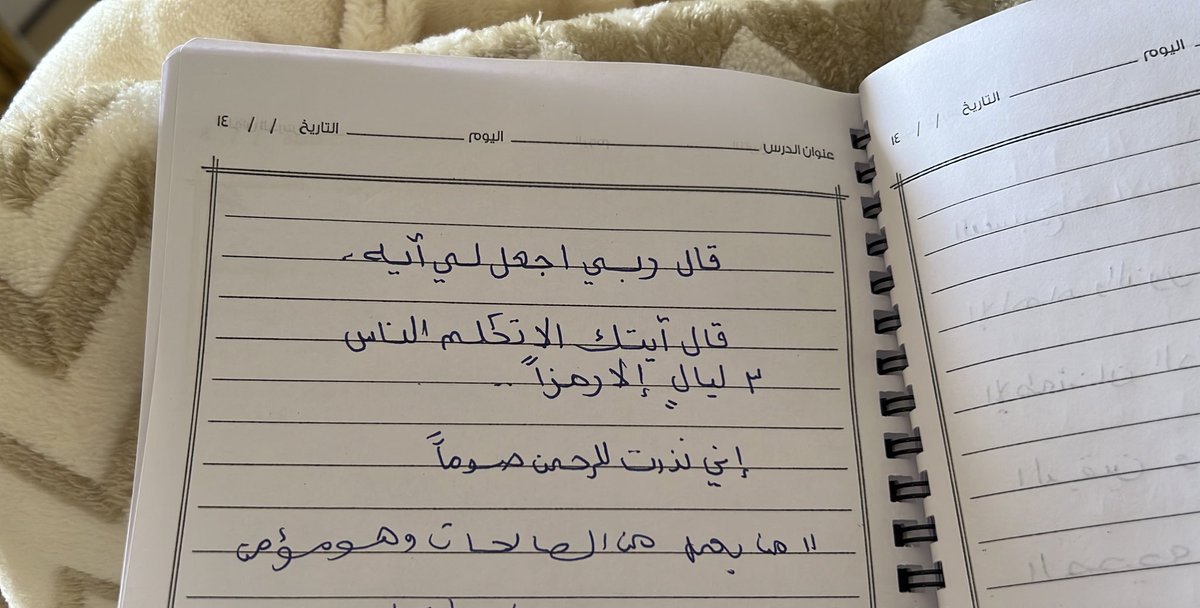 عنوان الدرس اليوم التاريخ / / ١٤
قال ربي اجعل لي آيه
قال آيتك الا تكلم الناس
٣ ليالٍ إلا رمزاً ..
إني نذرت للرحمن صوماً
" من يعمل من الصالحات وهو مؤمن
اليوم
التاريخ / / ١٤